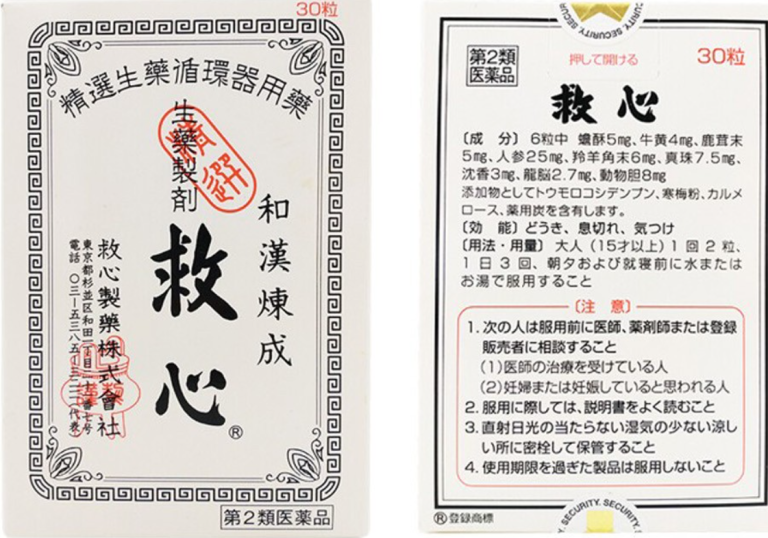 30粒
精選生薬循環器用薬
生薬製剤
精選
和漢煉成
救心
®
救心製薬株式會社
東京都杉並区和田一丁目二十一番七号
電話 〇三―五三八五―三二一一(代表)
第2類医薬品
SECURITY. SECURITY
第2類
医薬品
押して開ける
30粒
救心
〔成 分〕 6粒中 蟾酥5mg、牛黄4mg、鹿茸末
5mg、人参25mg、羚羊角末6mg、真珠7.5mg、
沈香3mg、龍脳2.7mg、動物胆8mg
添加物としてトウモロコシデンプン、寒梅粉、カルメ
ロース、薬用炭を含有します。
〔効 能〕 どうき、息切れ、気つけ
〔用法・用量〕 大人(15才以上)1回2粒、
1日3回、朝夕および就寝前に水または
お湯で服用すること
〔注 意〕
1. 次の人は服用前に医師、薬剤師または登録
販売者に相談すること
(1)医師の治療を受けている人
(2)妊婦または妊娠していると思われる人
2. 服用に際しては、説明書をよく読むこと
3. 直射日光の当たらない湿気の少ない涼し
い所に密栓して保管すること
4. 使用期限を過ぎた製品は服用しないこと
®登録商標
SECURITY. SECURITY